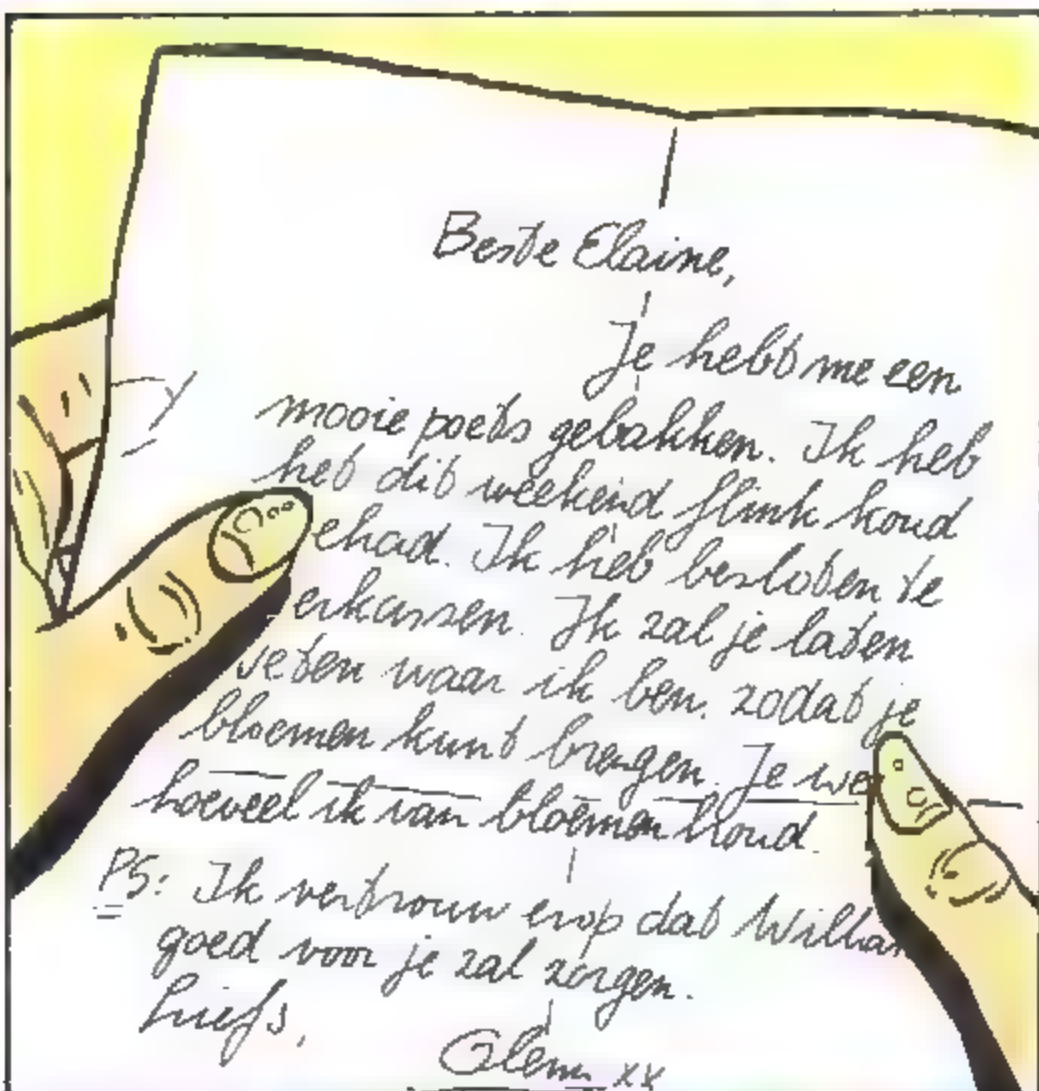 Beste Elaine,
Je hebt me een
mooie poets gebakken. Ik heb
het dit weekeind flink koud
ehad. Ik heb besloten te
erkassen. Ik zal je laten
weten waar ik ben, zodat je
bloemen kunt brengen. Je we
hoeveel ik van bloemen houd.
PS: Ik vertrouw erop dat Willia
goed voor je zal zorgen.
Liefs,
Glenn xx